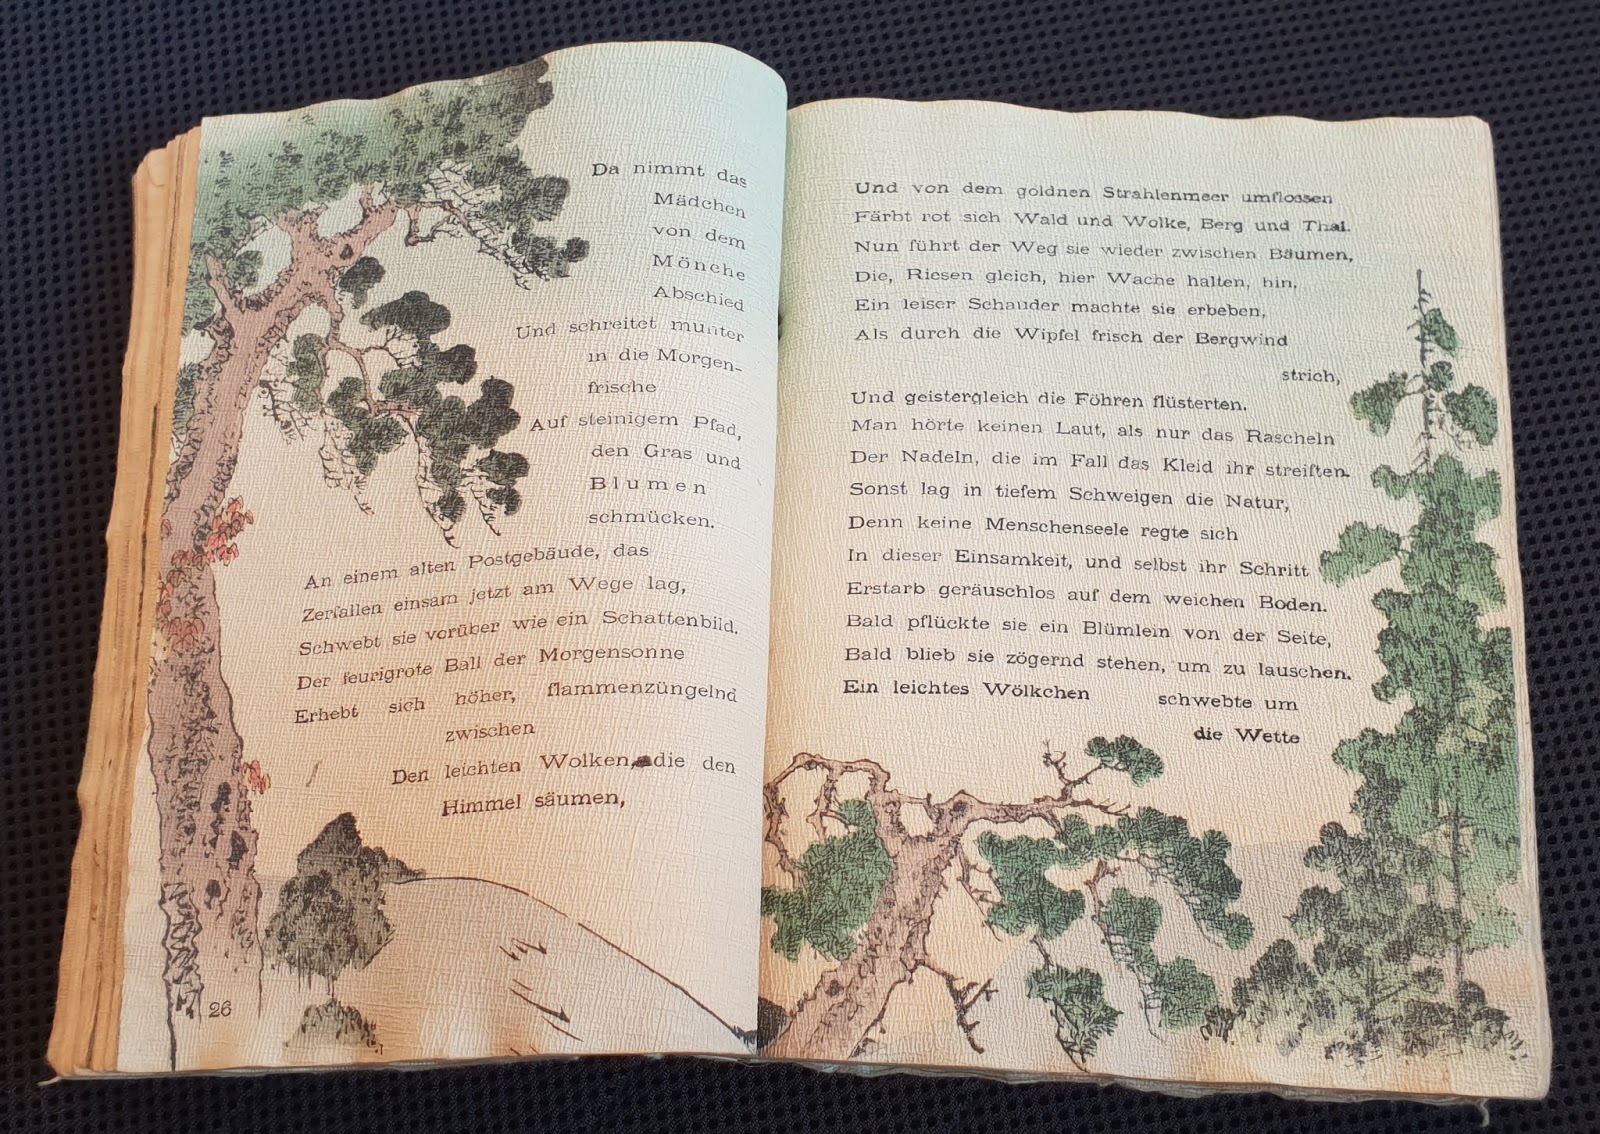 Da nimmt das
Mädchen
von dem
Mönche
Abschied
Und schreitet munter
in die Morgen-
frische
Auf steinigem Pfad,
den Gras und
Blumen
schmücken.
An einem alten Postgebäude, das
Zerfallen einsam jetzt am Wege lag,
Schwebt sie vorüber wie ein Schattenbild.
Der feurigrote Ball der Morgensonne
Erhebt sich höher, flammenzüngelnd
zwischen
Den leichten Wolken, die den
Himmel säumen,
26
Und von dem goldnen Strahlenmeer umflossen
Färbt rot sich Wald und Wolke, Berg und Thal.
Nun führt der Weg sie wieder zwischen Bäumen,
Die, Riesen gleich, hier Wache halten, hin.
Ein leiser Schauder machte sie erbeben,
Als durch die Wipfel frisch der Bergwind
strich,
Und geistergleich die Föhren flüsterten.
Man hörte keinen Laut, als nur das Rascheln
Der Nadeln, die im Fall das Kleid ihr streiften.
Sonst lag in tiefem Schweigen die Natur,
Denn keine Menschenseele regte sich
In dieser Einsamkeit, und selbst ihr Schritt
Erstarb geräuschlos auf dem weichen Boden.
Bald pflückte sie ein Blümlein von der Seite,
Bald blieb sie zögernd stehen, um zu lauschen.
Ein leichtes Wölkchen schwebte um
die Wette